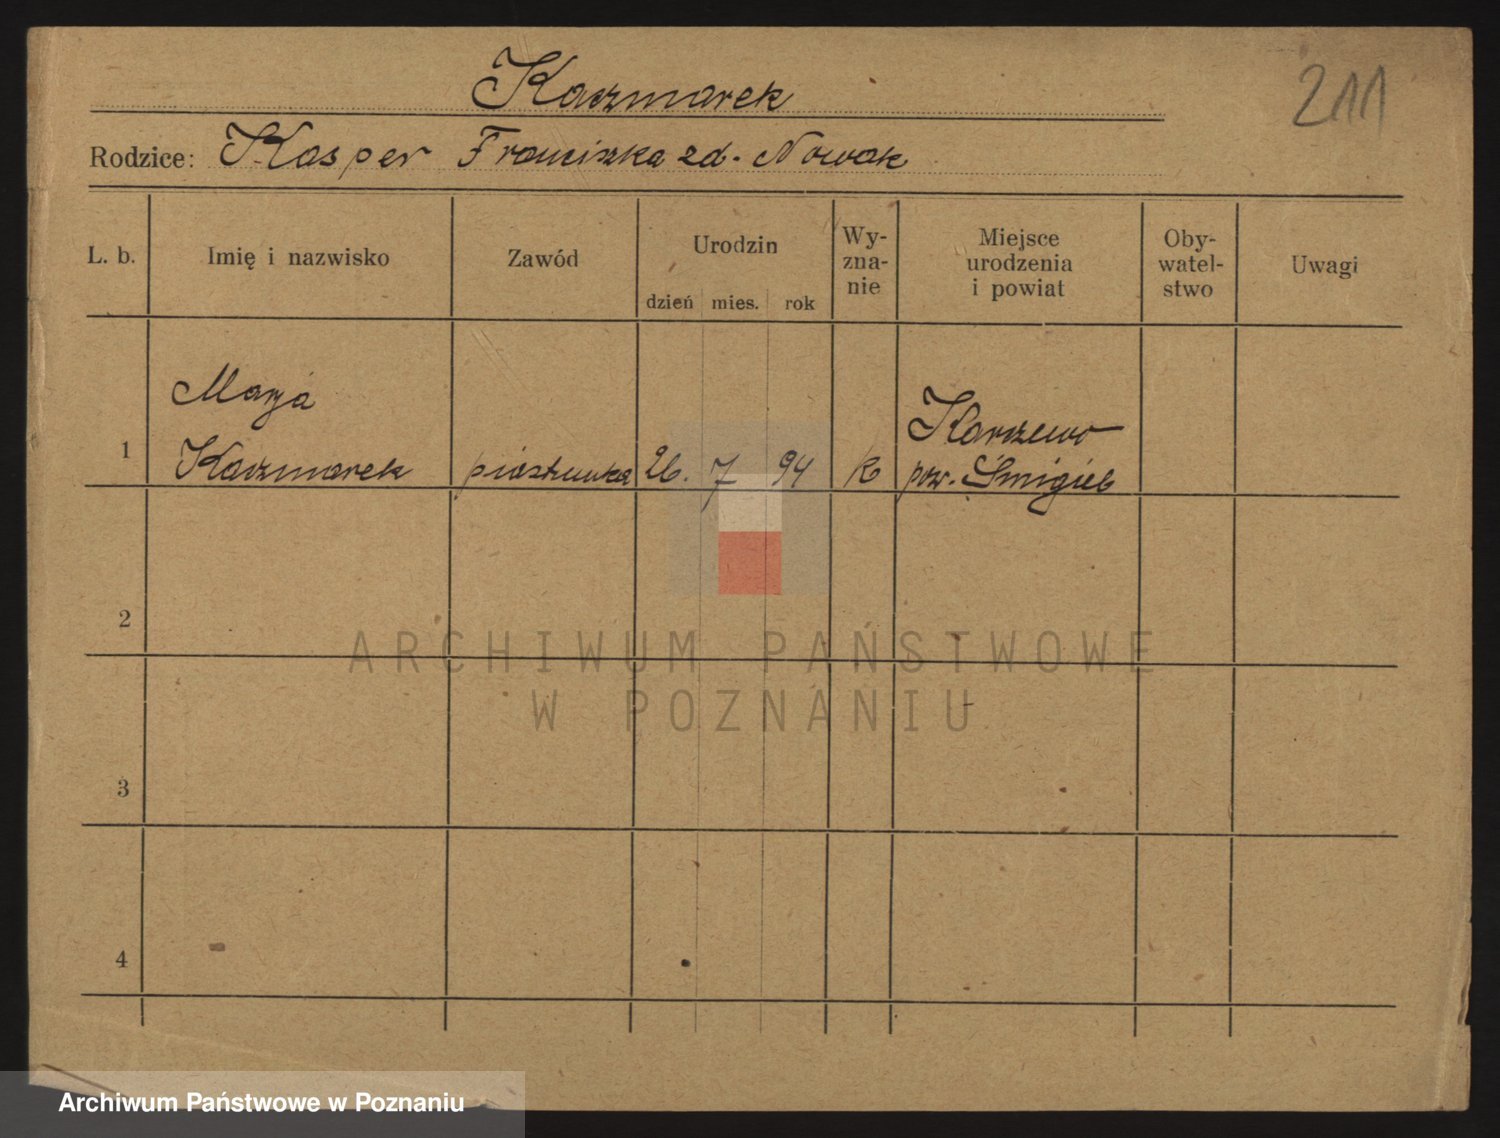 Kaczmarek
211
Rodzice: Kasper Franciszka zd. Nowak
L. b.
Imię i nazwisko
Zawód
Urodzin
dzień mies. rok
Wy-
zna-
nie
Miejsce
urodzenia
i powiat
Oby-
watel-
stwo
Uwagi
1
Marja
Kaczmarek
piastunka
26. 7 94
k
Karczewo
pow. Śmigiel
2
3
4
ARCHIWUM PAŃSTWOWE
W POZNANIU
Archiwum Państwowe w Poznaniu